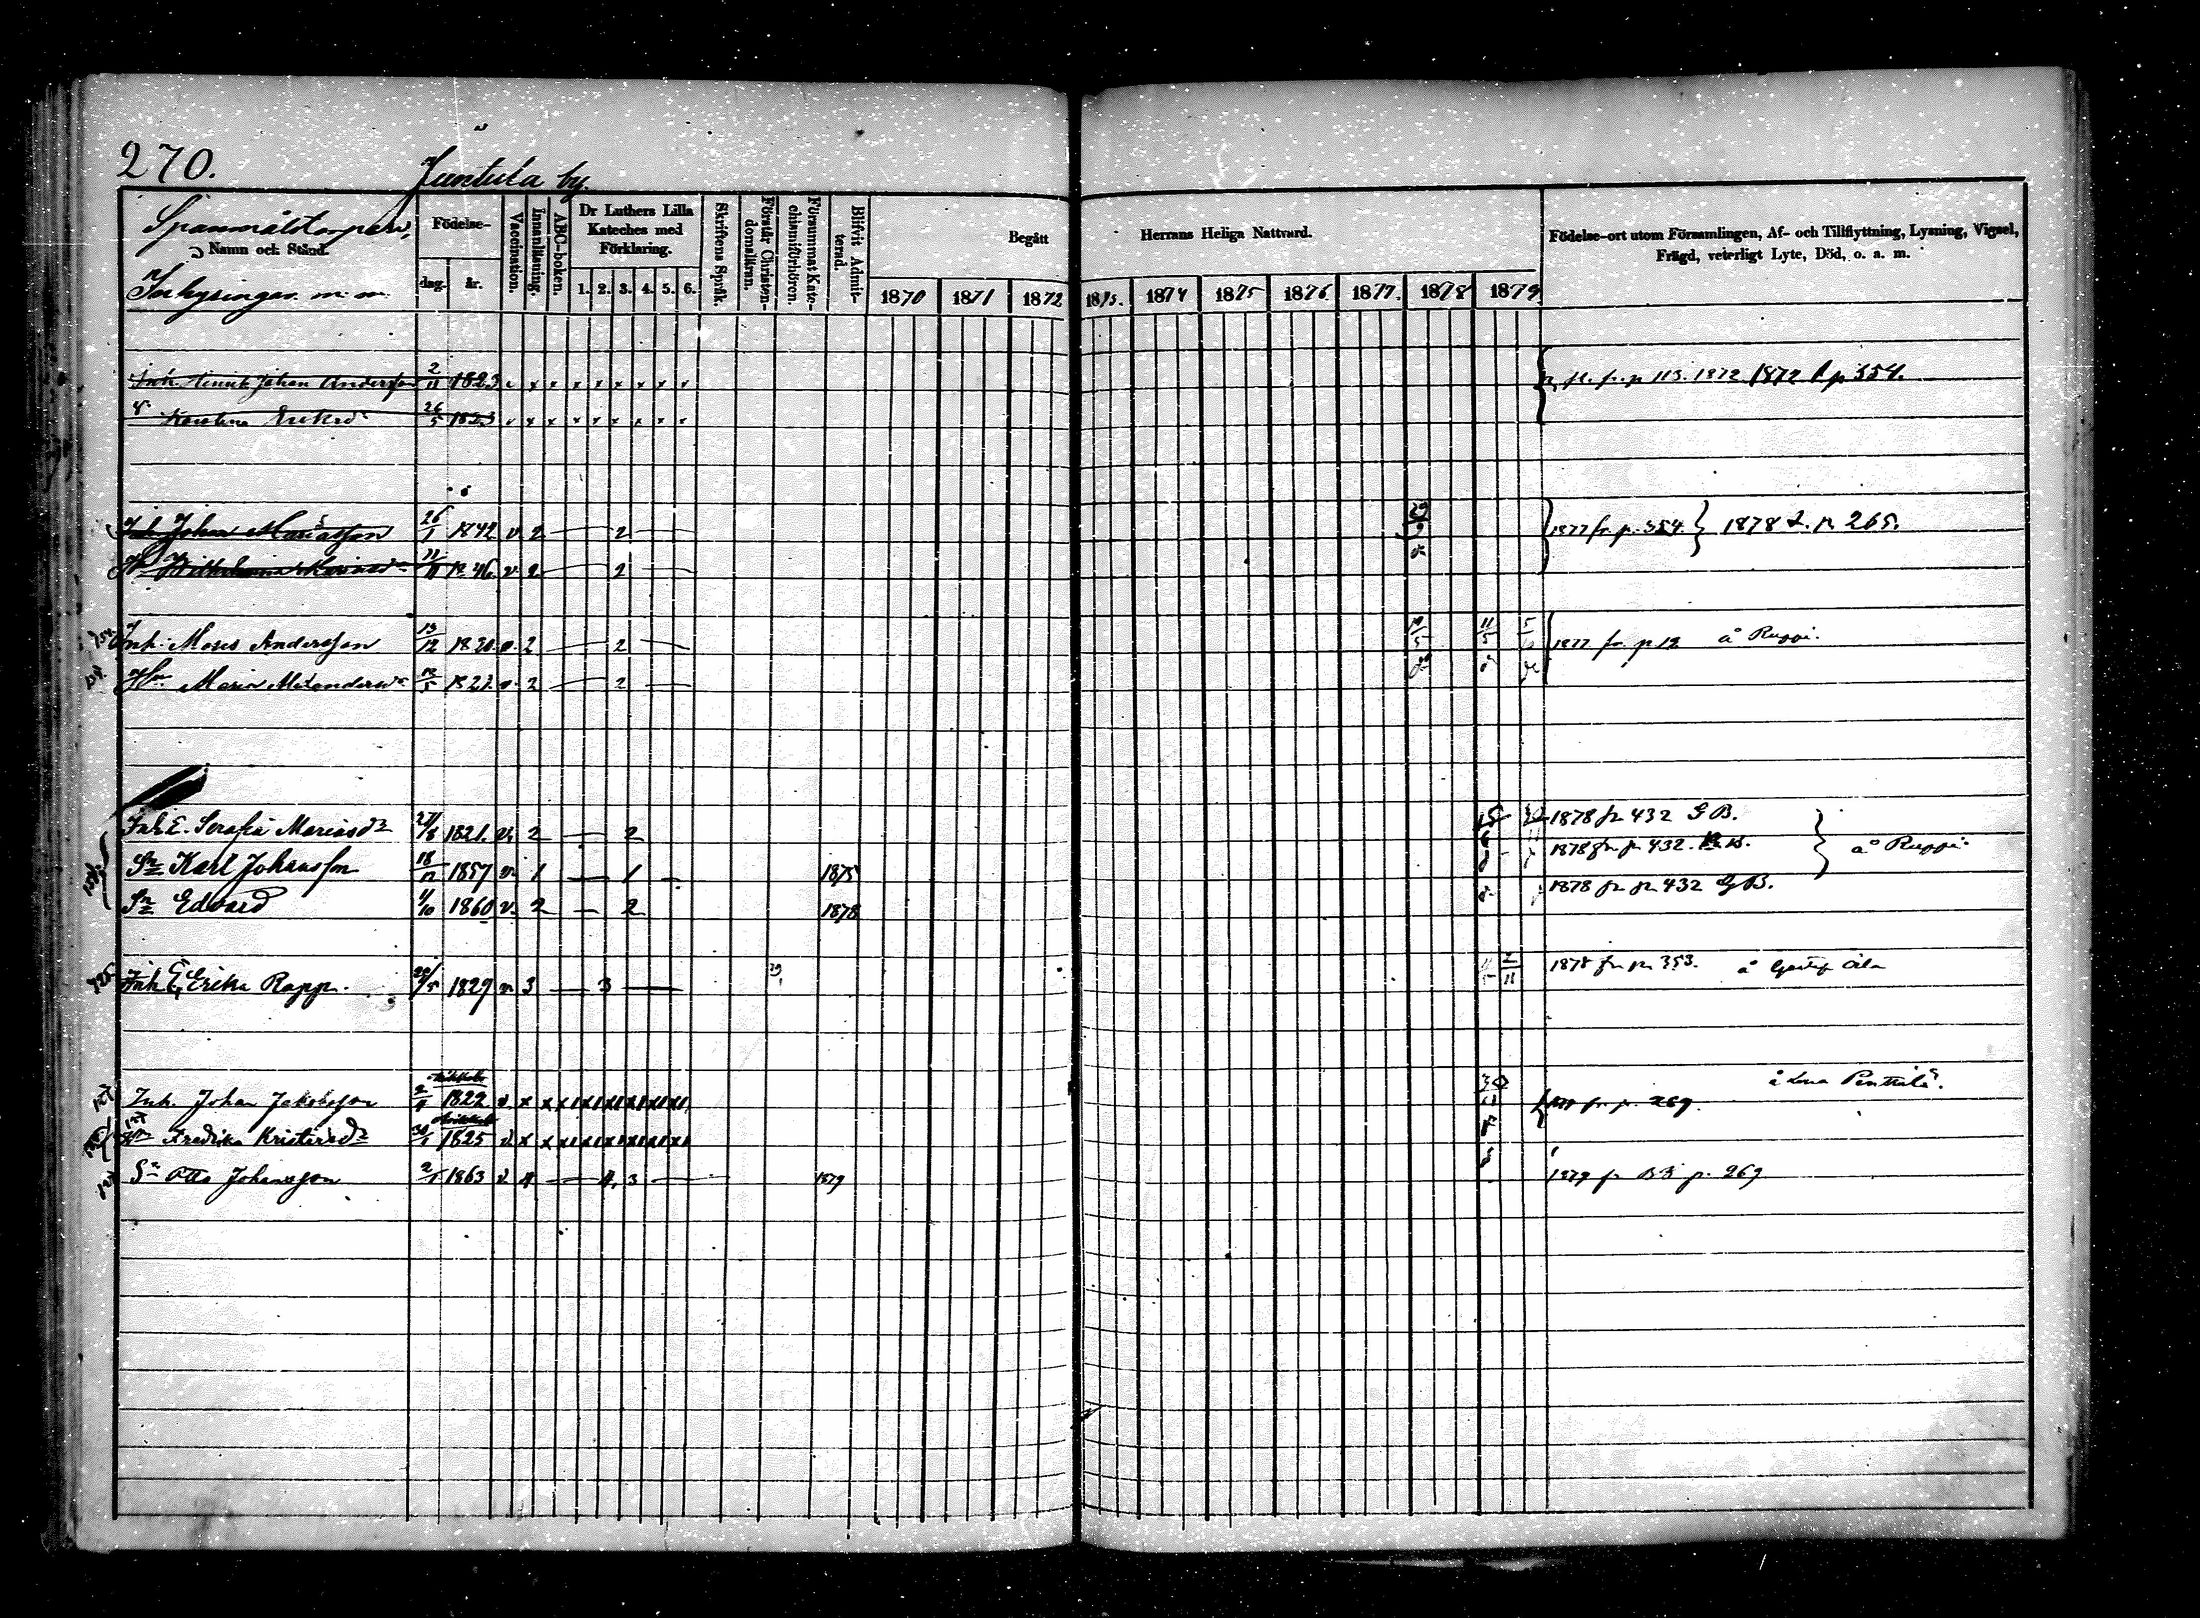 270.
Juntula by.
Spanmålstorpare,
Namn och Stånd.
Inhysingar m. m.
Födelse-
dag. år.
Vaccination.
Innanläsning.
ABC-boken.
Dr Luthers Lilla Kateches med Förklaring.
1. 2. 3. 4. 5. 6.
Skriftens Språk.
Förstår Christendomsläran.
Försummat Katechismiförhören.
Blifvit Admitterad.
Begått Herrans Heliga Nattvard.
1870 1871 1872 1873. 1874 1875 1876 1877. 1878 1879
Födelse-ort utom Församlingen, Af- och Tillflyttning, Lysning, Vigsel,
Frägd, veterligt Lyte, Död, o. a. m.
Inh. Henrik Johan Andersson 2/11 1823 fr. p 113. 1872 1872 t p 354.
Karolina Eriksdr 26/5 1823
Inh. Johan Mariasson 26/1 1842 v. 2 — 2 — 29/9 1877 fr. p. 354. } 1878 t. p. 265.
46 v. 2 — 2 —
Inh. Moses Andersson 13/12 1820 v. 2 — 2 — 11/5 1877 fr. p 12 å Ruppi.
Hu Maria 1821 v. 2 — 2 —
Inh. E. Serafia Mariasdr 27/8 1821. v. 2 — 2 1878 fr 432 GB.
Sn Karl Johansson 18/12 1857 v. 1 — 1 — 1875 1878 fr p. 432. å Ruppi.
Sn Edvard 1/10 1860 v. 2 — 2 1878 1878 fr p 432 GB.
Inh. E. Erika Rapp. 1829 v 3 — 3 — 1878 fr p. 353. å Gustaf Ala
Inh. Johan Jakobsson 2/9 1822 v x x x x x x x x å Lona Penttilä.
fr. p. 269.
Hu Fredrika Kristersdr 30/1 1825 v x x x x x x x x
Sn Otto Johansson 2/1 1863 v 4 — 4, 3 — 1879 1879 fr BB p. 269